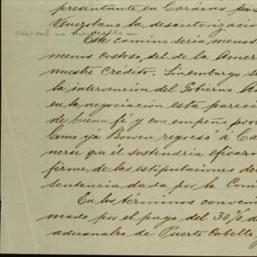 presentante en Carácas par
Venezolano la desautorizació
Este camino seria menos
menos costoso, del de la Amer
nuestro Credito. Sin embargo s
la intervencion del Gobierno
en la negociación esta pareci
de buena fé y con empeño por
Como ya Bowen regresó á Ca
nerse que él sostendria eficaz
firme de las estipulaciones de
sentencia dada por la Comi
En los términos conveni
mado por el pago del 30% d
aduanales de Puerto Cabello y